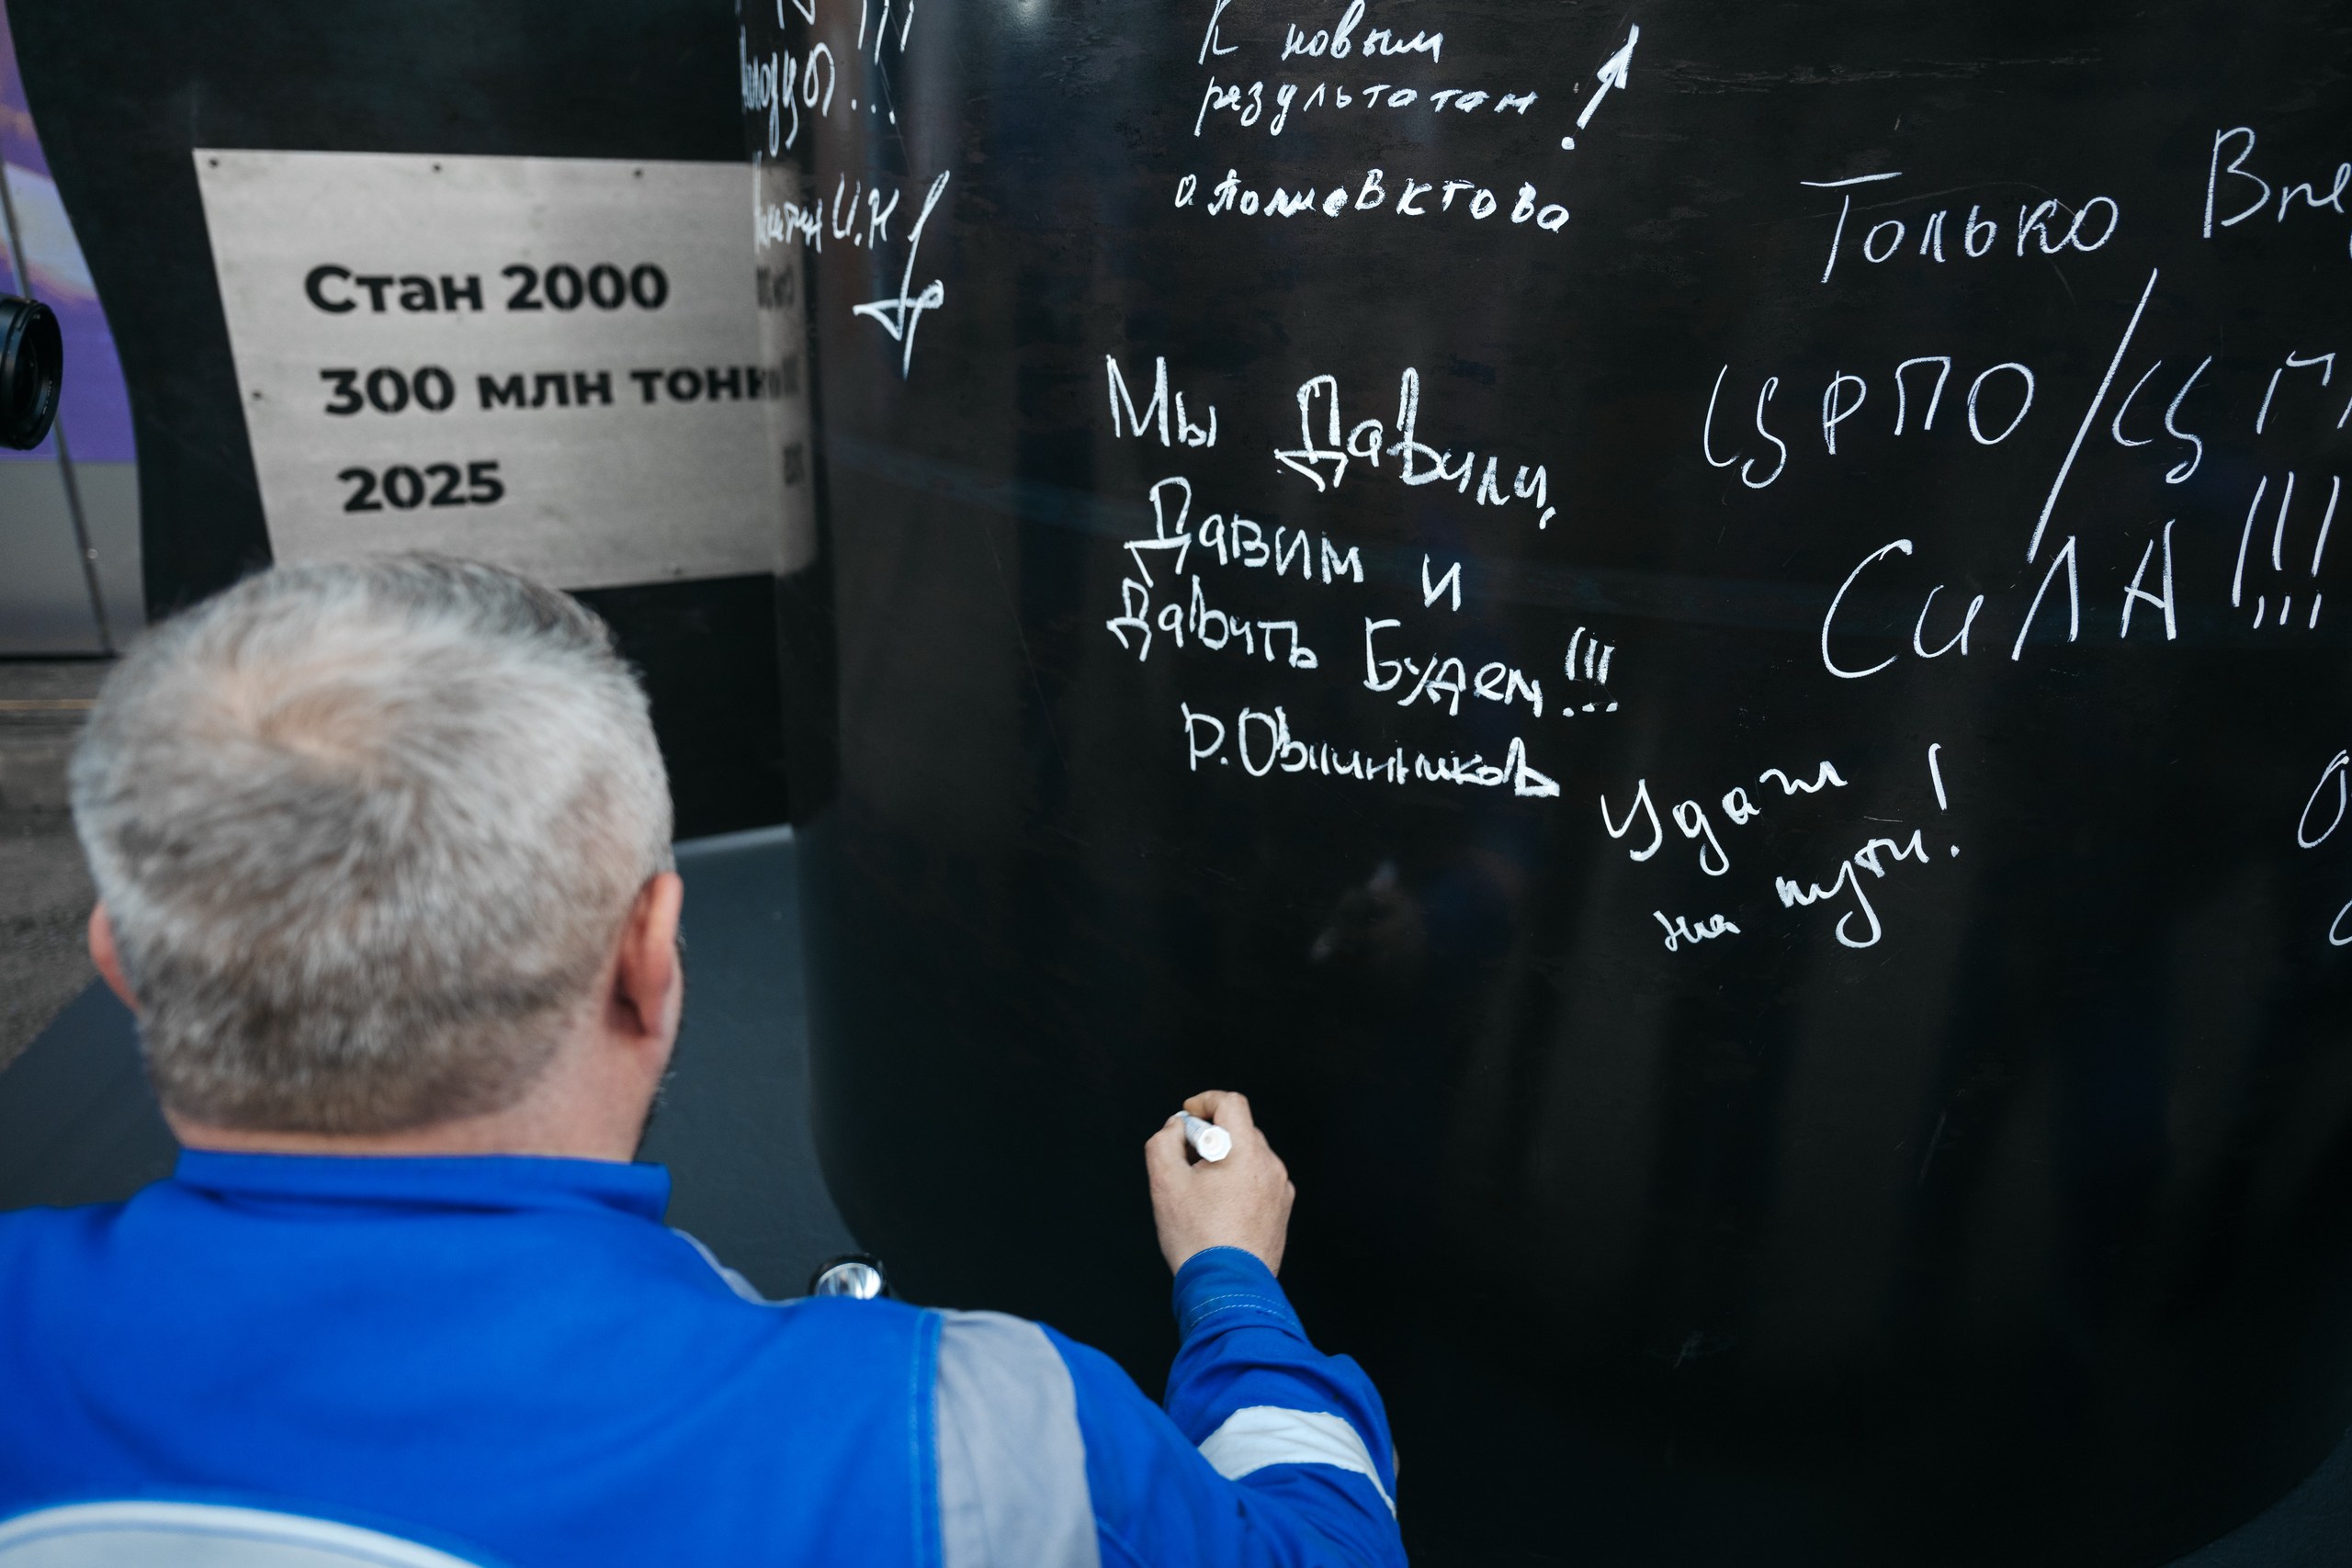 Стан 2000
300 млн тонн
2025
И.Н
К новым
результатам!
Только
ЦРПО/
СИЛА!!!
Мы Давили,
Давим и
Давить Будем!!!
Р.Овчинников
Удачи
на пути!